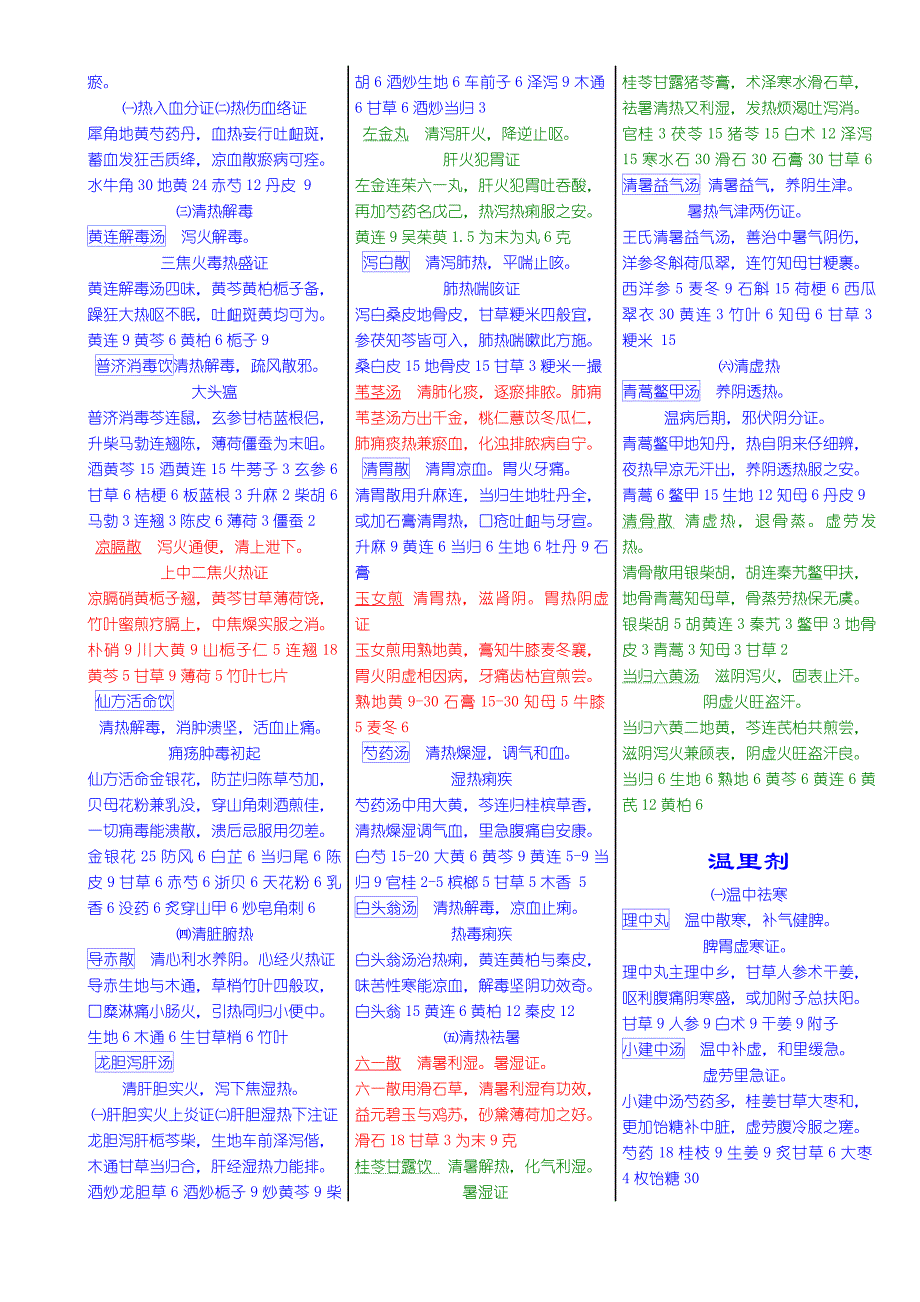 瘀。
㈠热入血分证㈡热伤血络证
犀角地黄芍药丹，血热妄行吐衄斑，
蓄血发狂舌质绛，凉血散瘀病可痊。
水牛角 30 地黄 24 赤芍 12 丹皮 9
㈢清热解毒
黄连解毒汤 泻火解毒。
三焦火毒热盛证
黄连解毒汤四味，黄芩黄柏栀子备，
躁狂大热呕不眠，吐衄斑黄均可为。
黄连 9 黄芩 6 黄柏 6 栀子 9
普济消毒饮清热解毒，疏风散邪。
大头瘟
普济消毒芩连鼠，玄参甘桔蓝根侣，
升柴马勃连翘陈，薄荷僵蚕为末咀。
酒黄芩 15 酒黄连 15 牛蒡子 3 玄参 6
甘草 6 桔梗 6 板蓝根 3 升麻 2 柴胡 6
马勃 3 连翘 3 陈皮 6 薄荷 3 僵蚕 2
凉膈散 泻火通便，清上泄下。
上中二焦火热证
凉膈硝黄栀子翘，黄芩甘草薄荷饶，
竹叶蜜煎疗膈上，中焦燥实服之消。
朴硝 9 川大黄 9 山栀子仁 5 连翘 18
黄芩 5 甘草 9 薄荷 5 竹叶七片
仙方活命饮
清热解毒，消肿溃坚，活血止痛。
痈疡肿毒初起
仙方活命金银花，防芷归陈草芍加，
贝母花粉兼乳没，穿山角刺酒煎佳，
一切痈毒能溃散，溃后忌服用勿差。
金银花 25 防风 6 白芷 6 当归尾 6 陈
皮 9 甘草 6 赤芍 6 浙贝 6 天花粉 6 乳
香 6 没药 6 炙穿山甲 6 炒皂角刺 6
㈣清脏腑热
导赤散 清心利水养阴。心经火热证
导赤生地与木通，草梢竹叶四般攻，
口糜淋痛小肠火，引热同归小便中。
生地 6 木通 6 生甘草梢 6 竹叶
龙胆泻肝汤
清肝胆实火，泻下焦湿热。
㈠肝胆实火上炎证㈡肝胆湿热下注证
龙胆泻肝栀芩柴，生地车前泽泻偕，
木通甘草当归合，肝经湿热力能排。
酒炒龙胆草 6 酒炒栀子 9 炒黄芩 9 柴
胡 6 酒炒生地 6 车前子 6 泽泻 9 木通
6 甘草 6 酒炒当归 3
左金丸 清泻肝火，降逆止呕。
肝火犯胃证
左金连茱六一丸，肝火犯胃吐吞酸，
再加芍药名戊己，热泻热痢服之安。
黄连 9 吴茱萸 1.5 为末为丸 6 克
泻白散 清泻肺热，平喘止咳。
肺热喘咳证
泻白桑皮地骨皮，甘草粳米四般宜，
参茯知芩皆可入，肺热喘嗽此方施。
桑白皮 15 地骨皮 15 甘草 3 粳米一撮
苇茎汤 清肺化痰，逐瘀排脓。肺痈
苇茎汤方出千金，桃仁薏苡冬瓜仁，
肺痈痰热兼瘀血，化浊排脓病自宁。
清胃散 清胃凉血。胃火牙痛。
清胃散用升麻连，当归生地牡丹全，
或加石膏清胃热，口疮吐衄与牙宣。
升麻 9 黄连 6 当归 6 生地 6 牡丹 9 石
膏
玉女煎 清胃热，滋肾阴。胃热阴虚
证
玉女煎用熟地黄，膏知牛膝麦冬襄，
胃火阴虚相因病，牙痛齿枯宜煎尝。
熟地黄 9-30 石膏 15-30 知母 5 牛膝
5 麦冬 6
芍药汤 清热燥湿，调气和血。
湿热痢疾
芍药汤中用大黄，芩连归桂槟草香，
清热燥湿调气血，里急腹痛自安康。
白芍 15-20 大黄 6 黄芩 9 黄连 5-9 当
归 9 官桂 2-5 槟榔 5 甘草 5 木香 5
白头翁汤 清热解毒，凉血止痢。
热毒痢疾
白头翁汤治热痢，黄连黄柏与秦皮，
味苦性寒能凉血，解毒坚阴功效奇。
白头翁 15 黄连 6 黄柏 12 秦皮 12
㈤清热祛暑
六一散 清暑利湿。暑湿证。
六一散用滑石草，清暑利湿有功效，
益元碧玉与鸡苏，砂黛薄荷加之好。
滑石 18 甘草 3 为末 9 克
桂苓甘露饮 清暑解热，化气利湿。
暑湿证
桂苓甘露猪苓膏，术泽寒水滑石草，
祛暑清热又利湿，发热烦渴吐泻消。
官桂 3 茯苓 15 猪苓 15 白术 12 泽泻
15 寒水石 30 滑石 30 石膏 30 甘草 6
清暑益气汤 清暑益气，养阴生津。
暑热气津两伤证。
王氏清暑益气汤，善治中暑气阴伤，
洋参冬斛荷瓜翠，连竹知母甘粳裹。
西洋参 5 麦冬 9 石斛 15 荷梗 6 西瓜
翠衣 30 黄连 3 竹叶 6 知母 6 甘草 3
粳米 15
㈥清虚热
青蒿鳖甲汤 养阴透热。
温病后期，邪伏阴分证。
青蒿鳖甲地知丹，热自阴来仔细辨，
夜热早凉无汗出，养阴透热服之安。
青蒿 6 鳖甲 15 生地 12 知母 6 丹皮 9
清骨散 清虚热，退骨蒸。虚劳发
热。
清骨散用银柴胡，胡连秦艽鳖甲扶，
地骨青蒿知母草，骨蒸劳热保无虞。
银柴胡 5 胡黄连 3 秦艽 3 鳖甲 3 地骨
皮 3 青蒿 3 知母 3 甘草 2
当归六黄汤 滋阴泻火，固表止汗。
阴虚火旺盗汗。
当归六黄二地黄，芩连芪柏共煎尝，
滋阴泻火兼顾表，阴虚火旺盗汗良。
当归 6 生地 6 熟地 6 黄芩 6 黄连 6 黄
芪 12 黄柏 6
温里剂
㈠温中祛寒
理中丸 温中散寒，补气健脾。
脾胃虚寒证。
理中丸主理中乡，甘草人参术干姜，
呕利腹痛阴寒盛，或加附子总扶阳。
甘草 9 人参 9 白术 9 干姜 9 附子
小建中汤 温中补虚，和里缓急。
虚劳里急证。
小建中汤芍药多，桂姜甘草大枣和，
更加饴糖补中脏，虚劳腹冷服之瘥。
芍药 18 桂枝 9 生姜 9 炙甘草 6 大枣
4 枚饴糖 30